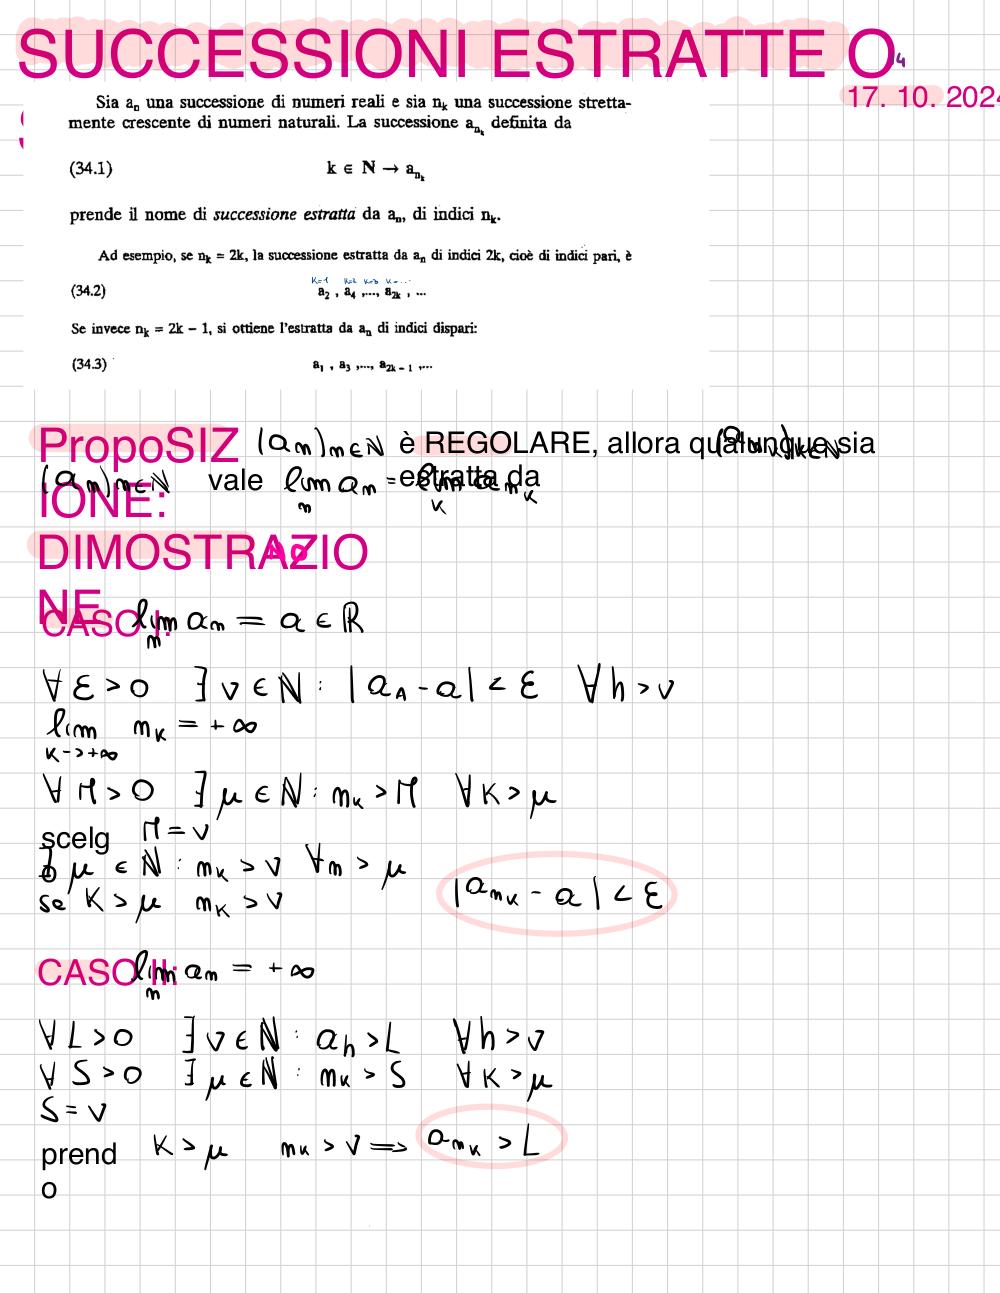 SUCCESSIONI ESTRATTE O
17. 10. 2024
Sia aₙ una successione di numeri reali e sia nₖ una successione stretta-
mente crescente di numeri naturali. La successione a_{nₖ} definita da
(34.1) k ∈ N → a_{nₖ}
prende il nome di successione estratta da aₙ, di indici nₖ.
Ad esempio, se nₖ = 2k, la successione estratta da aₙ di indici 2k, cioè di indici pari, è
K=1 K=2 K=3 K=...
(34.2) a₂ , a₄ ,..., a₂ₖ , ...
Se invece nₖ = 2k − 1, si ottiene l'estratta da aₙ di indici dispari:
(34.3) a₁ , a₃ ,..., a₂ₖ₋₁ ,...
PropoSIZIONE: (aₙ)ₙ∈ℕ è REGOLARE, allora qualunque sia (aₙₖ)ₖ∈ℕ estratta da
(aₙ)ₙ∈ℕ vale lim_n aₙ = lim_k a_{nₖ}
DIMOSTRAZIONE
CASO I: lim_n aₙ = a ∈ ℝ
∀ ε > 0 ∃ ν ∈ ℕ : |aₕ - a| < ε ∀ h > ν
lim_{k->+∞} nₖ = +∞
∀ M > 0 ∃ μ ∈ ℕ : nₖ > M ∀ k > μ
scelgo M = ν
∃ μ ∈ ℕ : nₖ > ν ∀ n > μ
se k > μ nₖ > ν |a_{nₖ} - a| < ε
CASO II: lim_n aₙ = +∞
∀ L > 0 ∃ ν ∈ ℕ : aₕ > L ∀ h > ν
∀ S > 0 ∃ μ ∈ ℕ : nₖ > S ∀ k > μ
S = ν
prendo k > μ nₖ > ν ⟹ a_{nₖ} > L